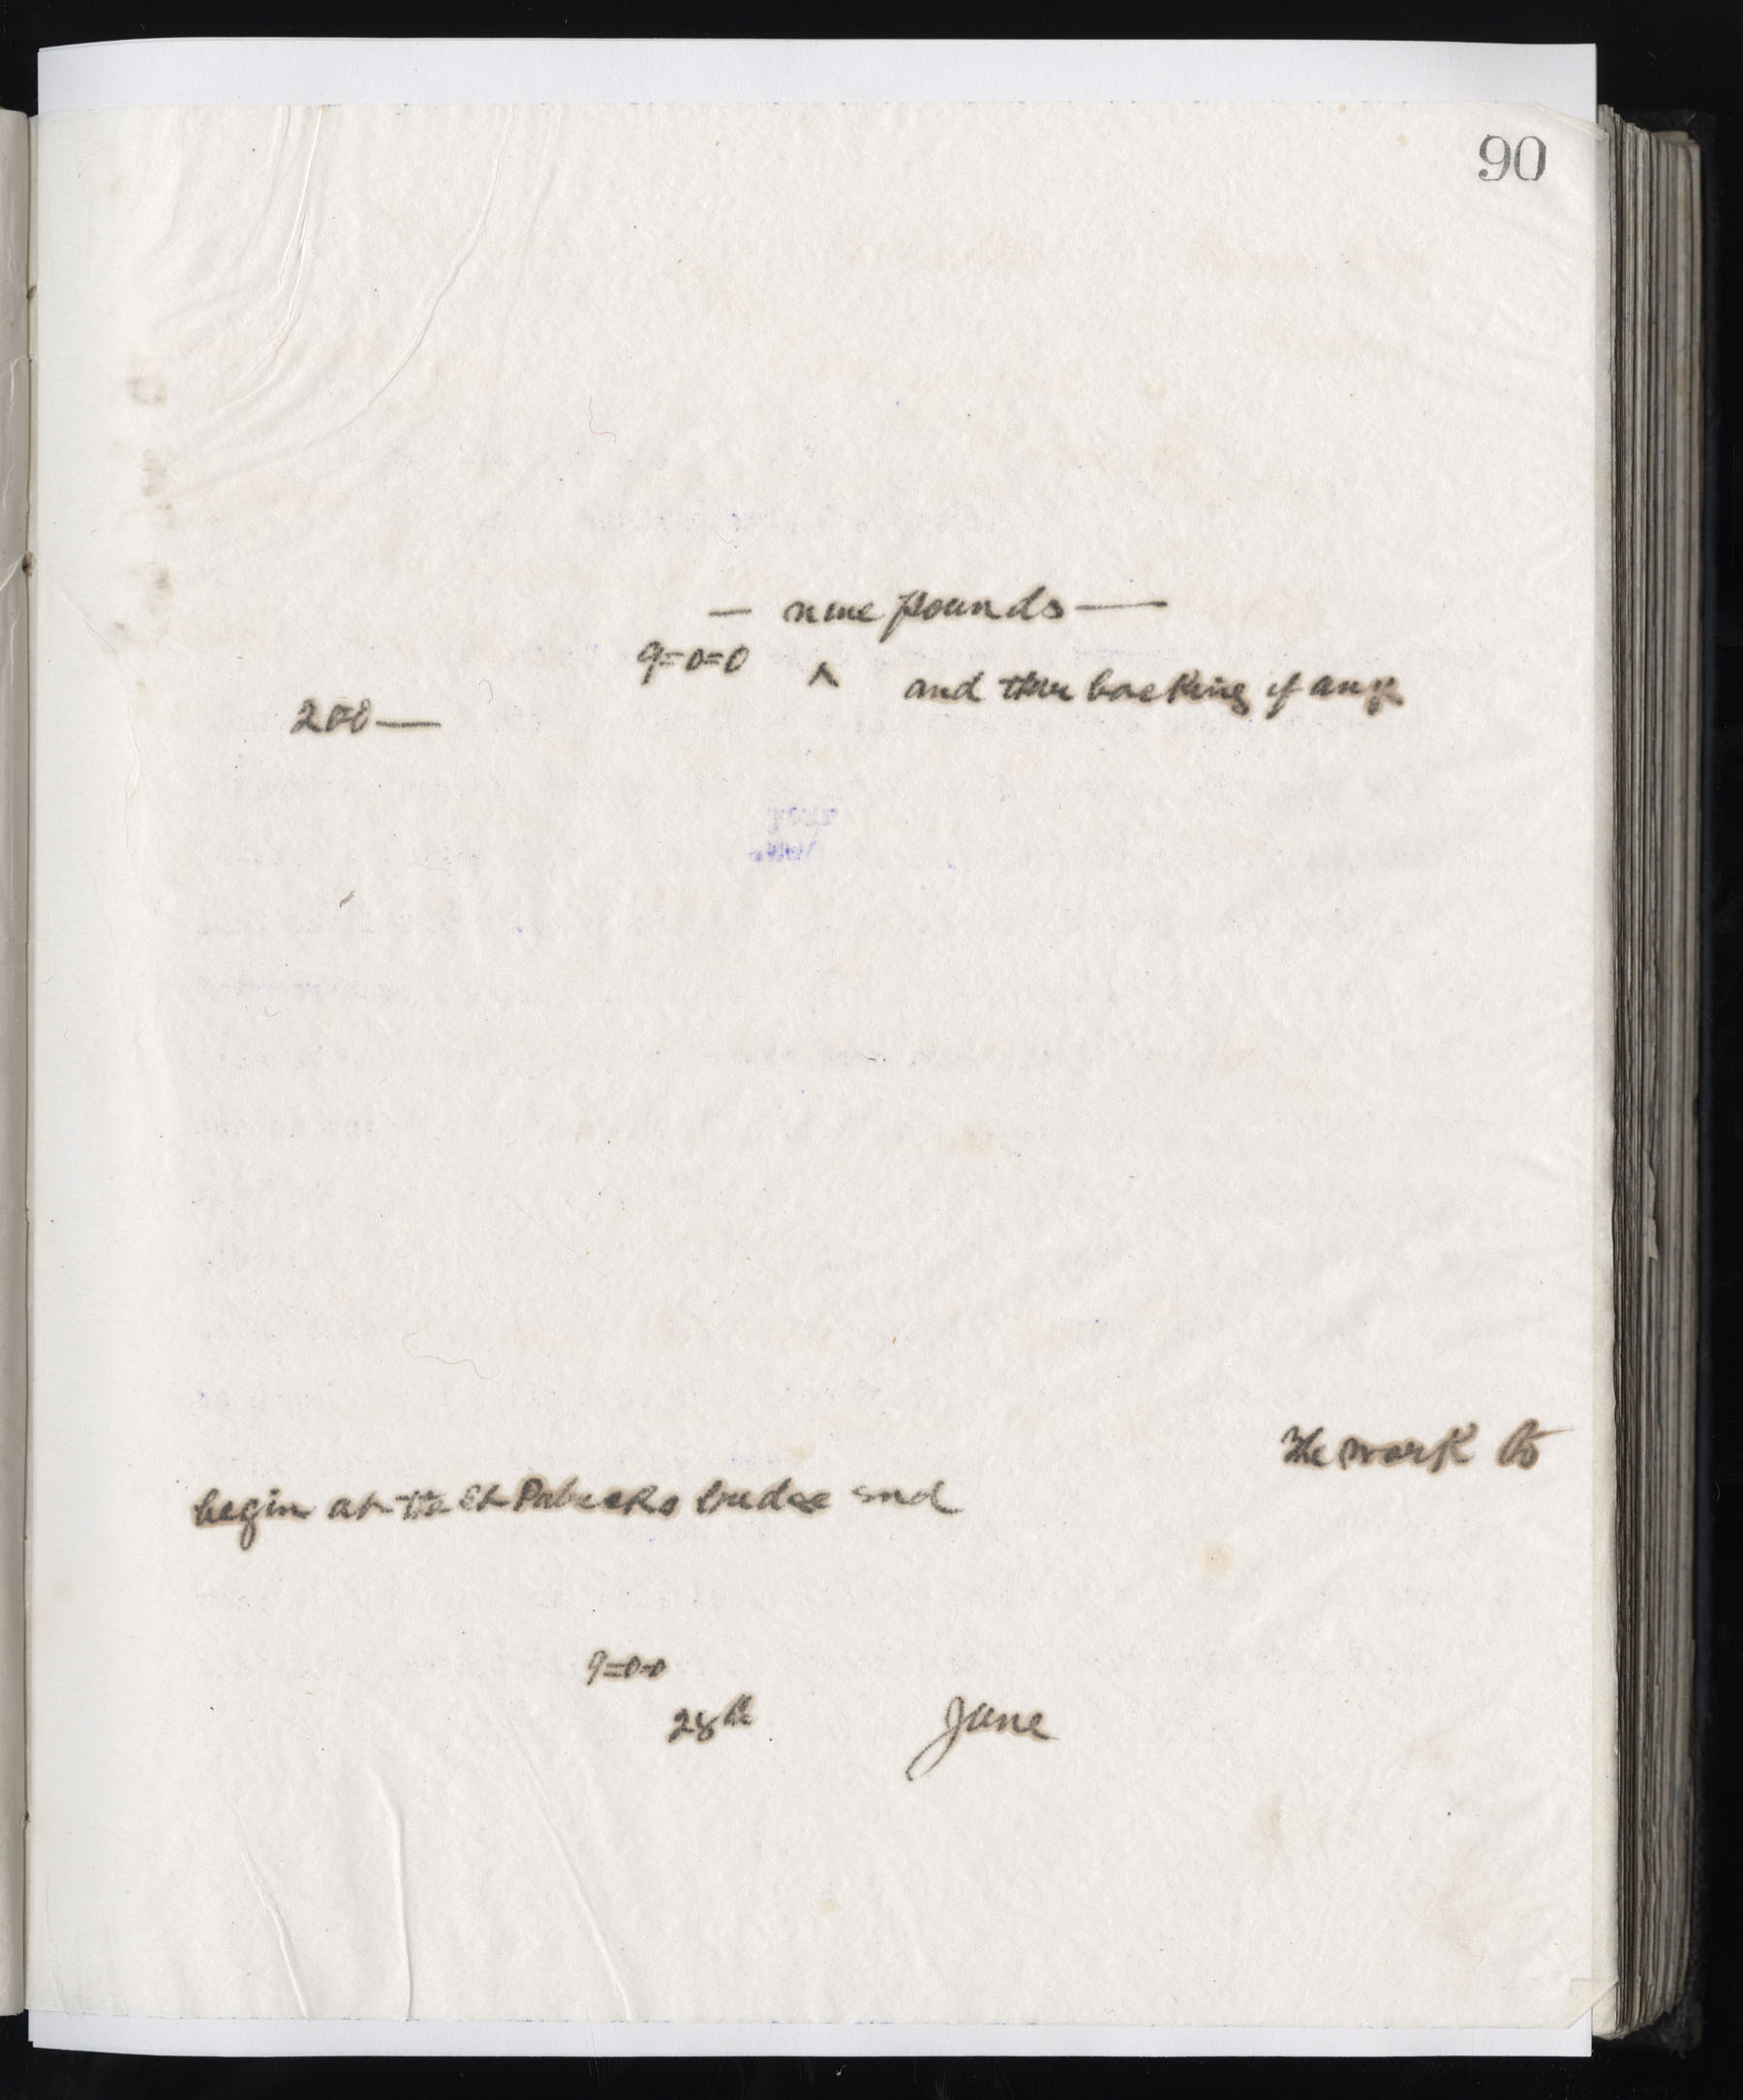 90
— nine pounds —
9=0=0 ^ and their backing if any
200 —
The work to
begin at the St Patricks bridge end
9=0=0
28th June